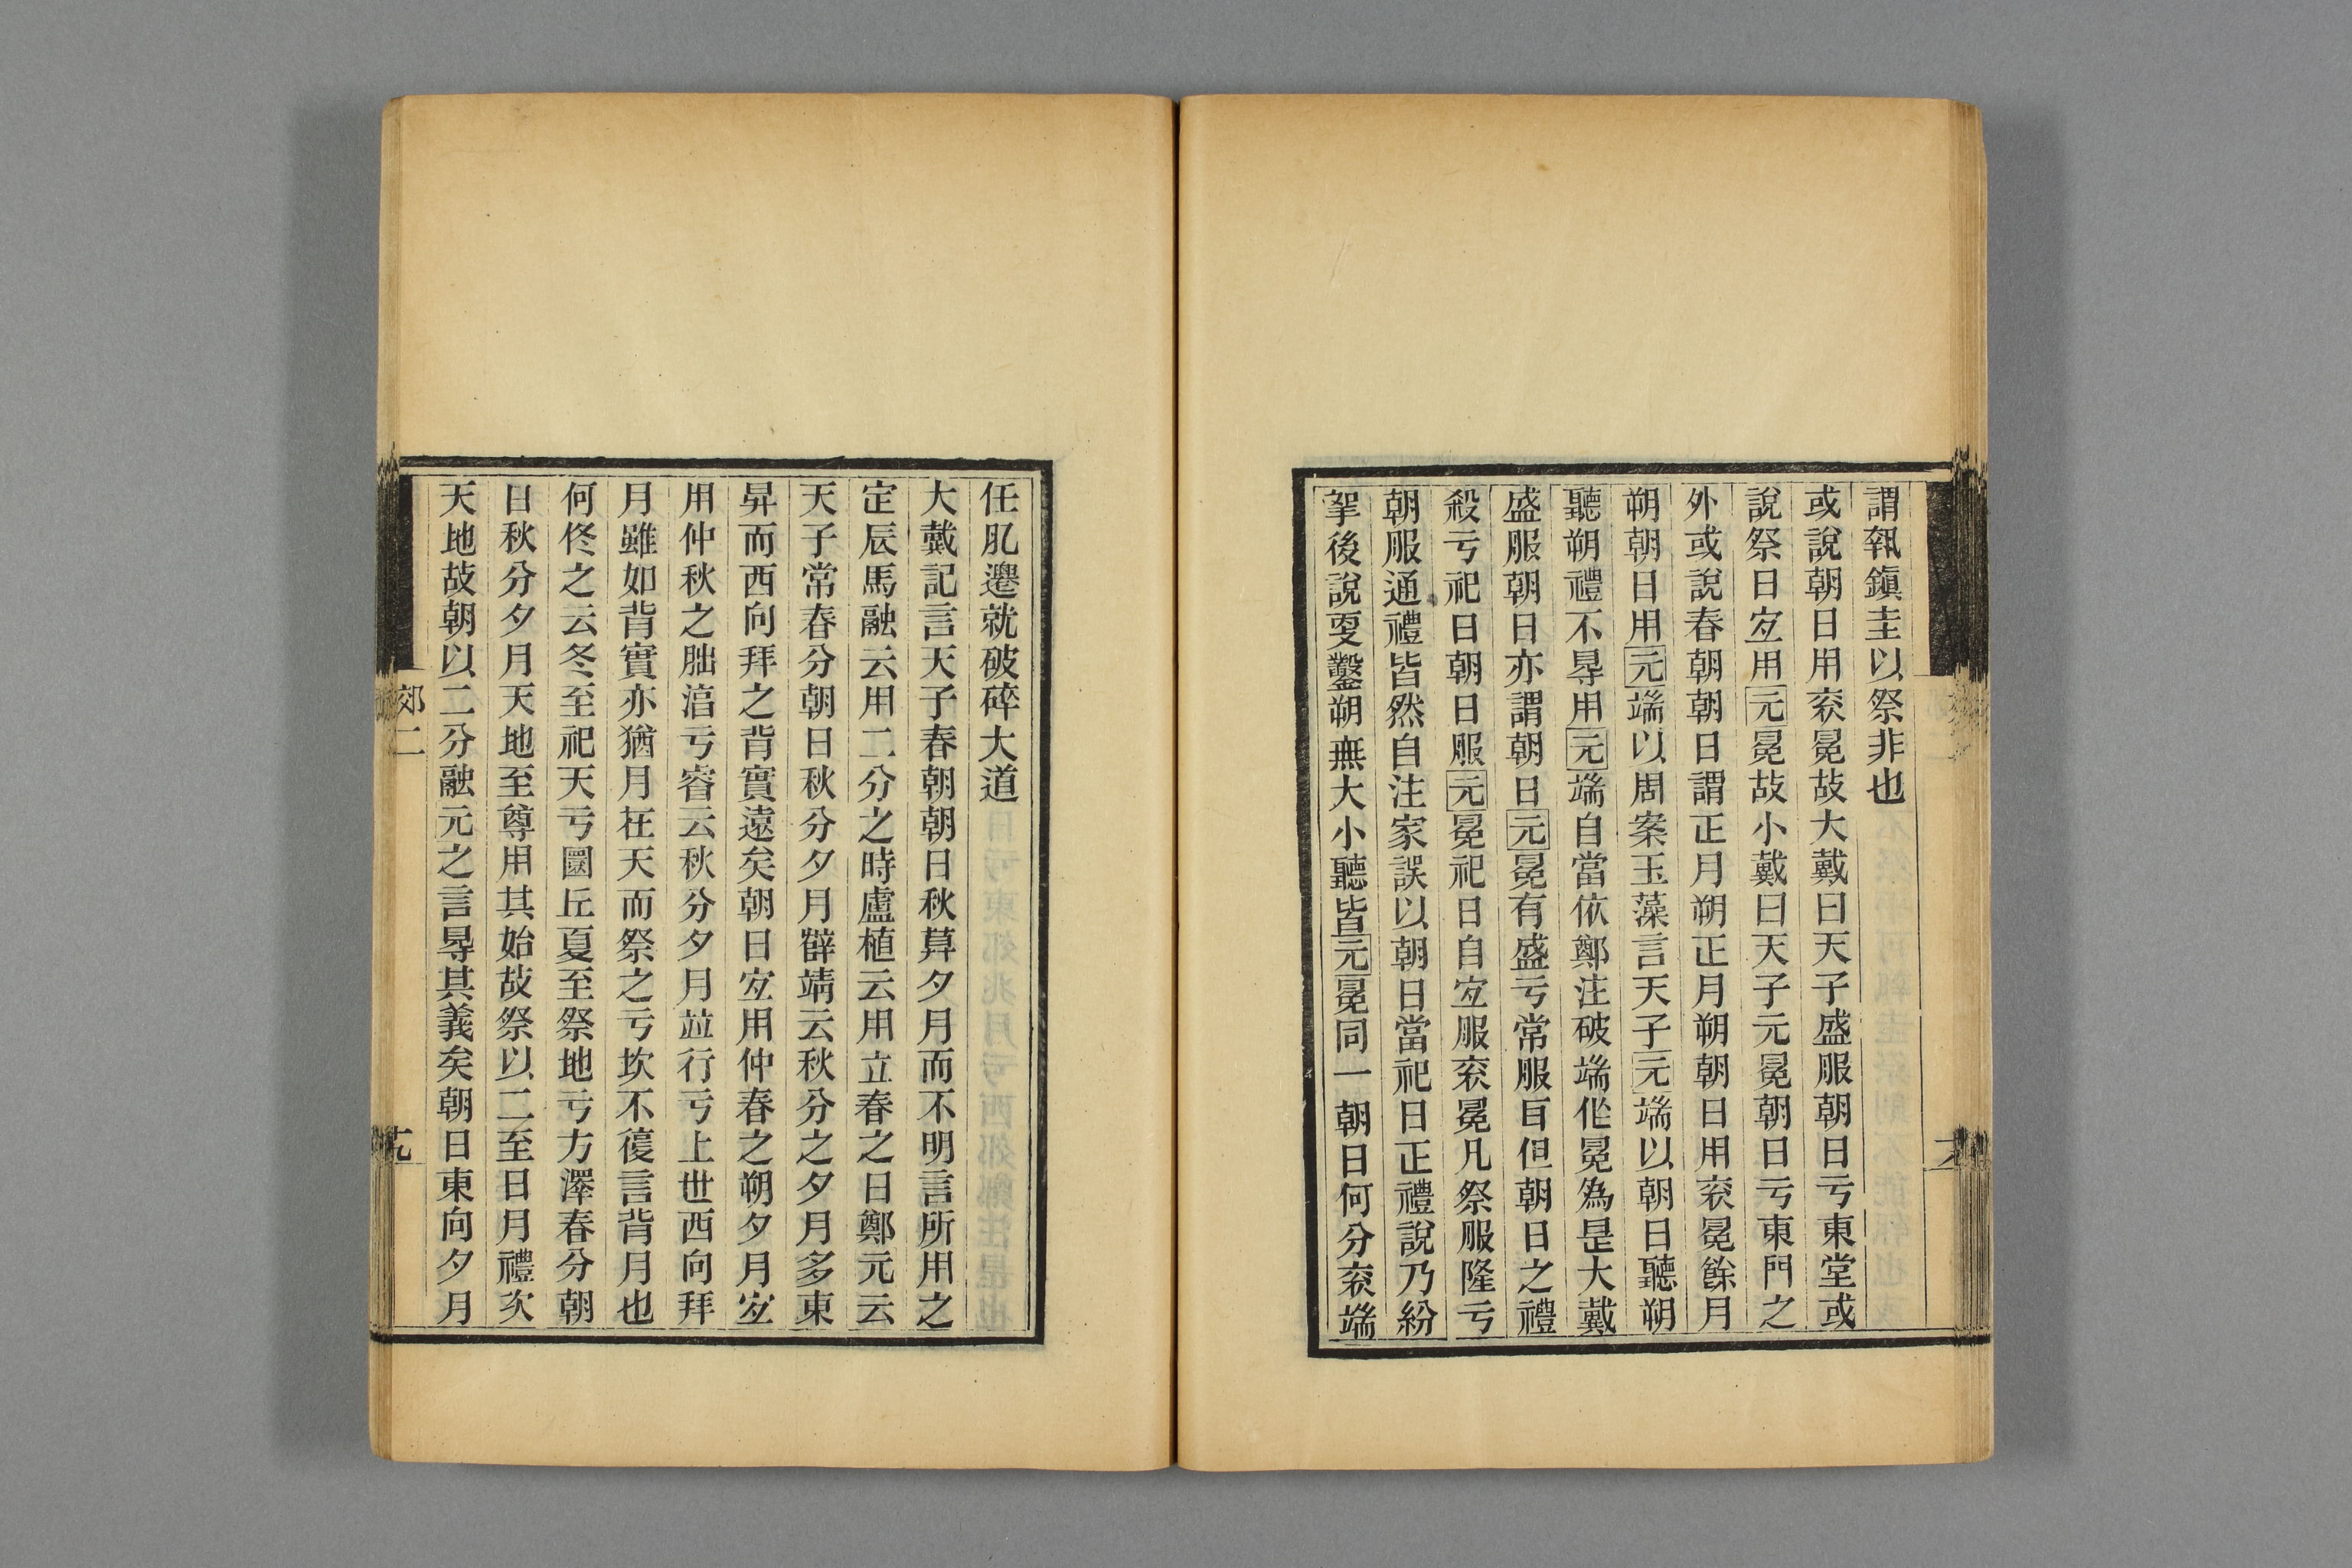 謂執鎭圭以祭非也
或說朝日用衮冕故大戴曰天子盛服朝日亏東堂或
說祭日宐用元冕故小戴曰天子元冕朝日亏東門之
外或說春朝朝日謂正月朔正月朔朝日用衮冕餘月
朔朝日用元端以周案玉藻言天子元端以朝日聽朔
聽朔禮不㝵用元端自當依鄭注破端作冕爲是大戴
盛服朝日亦謂朝日元冕有盛亏常服𦣻但朝日之禮
殺亏祀日朝日服元冕祀日自宐服衮冕凡祭服隆亏
朝服通禮皆然自注家誤以朝日當祀日正禮說乃紛
挐後說更鑿朔無大小聽皆元冕同一朝日何分衮端
任肊遷就破碎大道
大戴記言天子春朝朝日秋算夕月而不明言所用之
定辰馬融云用二分之時盧植云用立春之日鄭元云
天子常春分朝日秋分夕月薛靖云秋分之夕月多東
昇而西向拜之背實遠矣朝日宐用仲春之朔夕月宐
用仲秋之朏湻亏睿云秋分夕月竝行亏上世西向拜
月雖如背實亦猶月在天而祭之亏坎不復言背月也
何佟之云冬至祀天亏圜丘夏至祭地亏方澤春分朝
日秋分夕月天地至尊用其始故祭以二至日月禮次
天地故朝以二分融元之言㝵其義矣朝日東向夕月
郊二